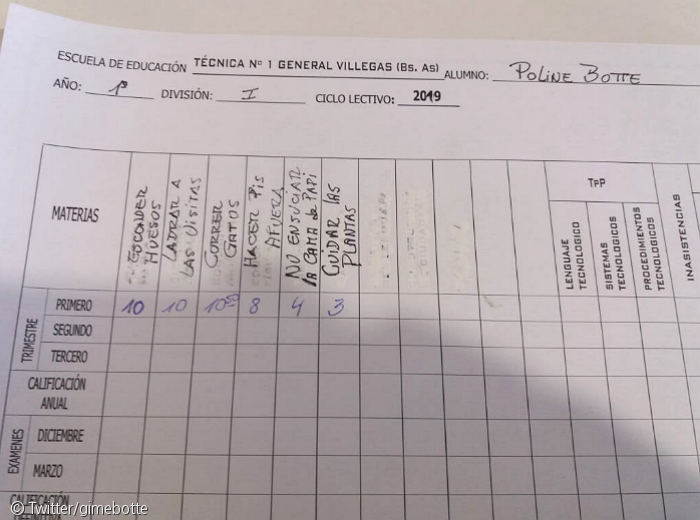 ESCUELA DE EDUCACIÓN TÉCNICA Nº 1 GENERAL VILLEGAS (BS. AS) ALUMNO: POLINE BOTTE
AÑO: 1º DIVISIÓN: I CICLO LECTIVO: 2019
MATERIAS
ESCONDER
HUESOS
LADRAR A
LAS VISITAS
CORRER
GATOS
HACER PIS
AFUERA
NO ENSUCIAR
LA CAMA de PAPI
CUIDAR LAS
PLANTAS
TPP
LENGUAJE
TECNOLOGICO
SISTEMAS
TECNOLOGICOS
PROCEDIMIENTOS
TECNOLOGICOS
INASISTENCIAS
TRIMESTRE
PRIMERO 10 10 10 8 4 3
SEGUNDO
TERCERO
CALIFICACIÓN
ANUAL
EXAMENES
DICIEMBRE
MARZO
CALIFICACIÓN
© Twitter/gimebotte